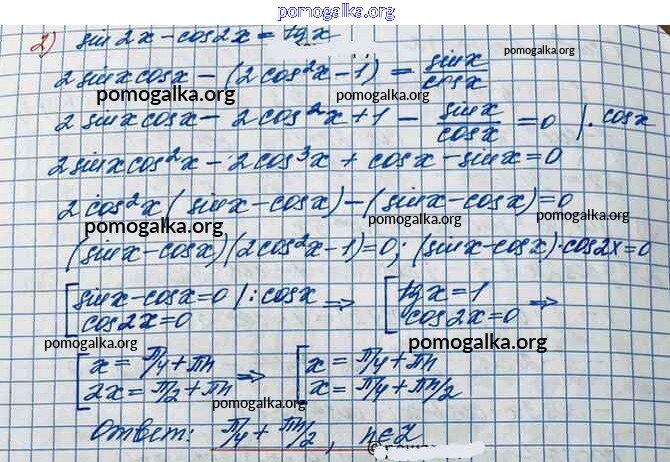 pomogalka.org
2) sin2x - cos2x = tgx
pomogalka.org
2 sinx cosx - (2cos²x - 1) = sinx/cosx
pomogalka.org pomogalka.org
2 sinx cosx - 2cos²x + 1 - sinx/cosx = 0 | · cosx
pomogalka.org
2 sinx cos²x - 2cos³x + cosx - sinx = 0
pomogalka.org
2 cos²x (sinx - cosx) - (sinx - cosx) = 0
pomogalka.org pomogalka.org pomogalka.org
(sinx - cosx)(2cos²x - 1) = 0; (sinx - cosx) · cos2x = 0
[ sinx - cosx = 0 | : cosx ⇒ [ tgx = 1 ⇒
cos2x = 0 cos2x = 0
pomogalka.org pomogalka.org
[ x = π/4 + πn ⇒ [ x = π/4 + πn
2x = π/2 + πn x = π/4 + πn/2
pomogalka.org
Ответ: π/4 + πn/2, n∈Z